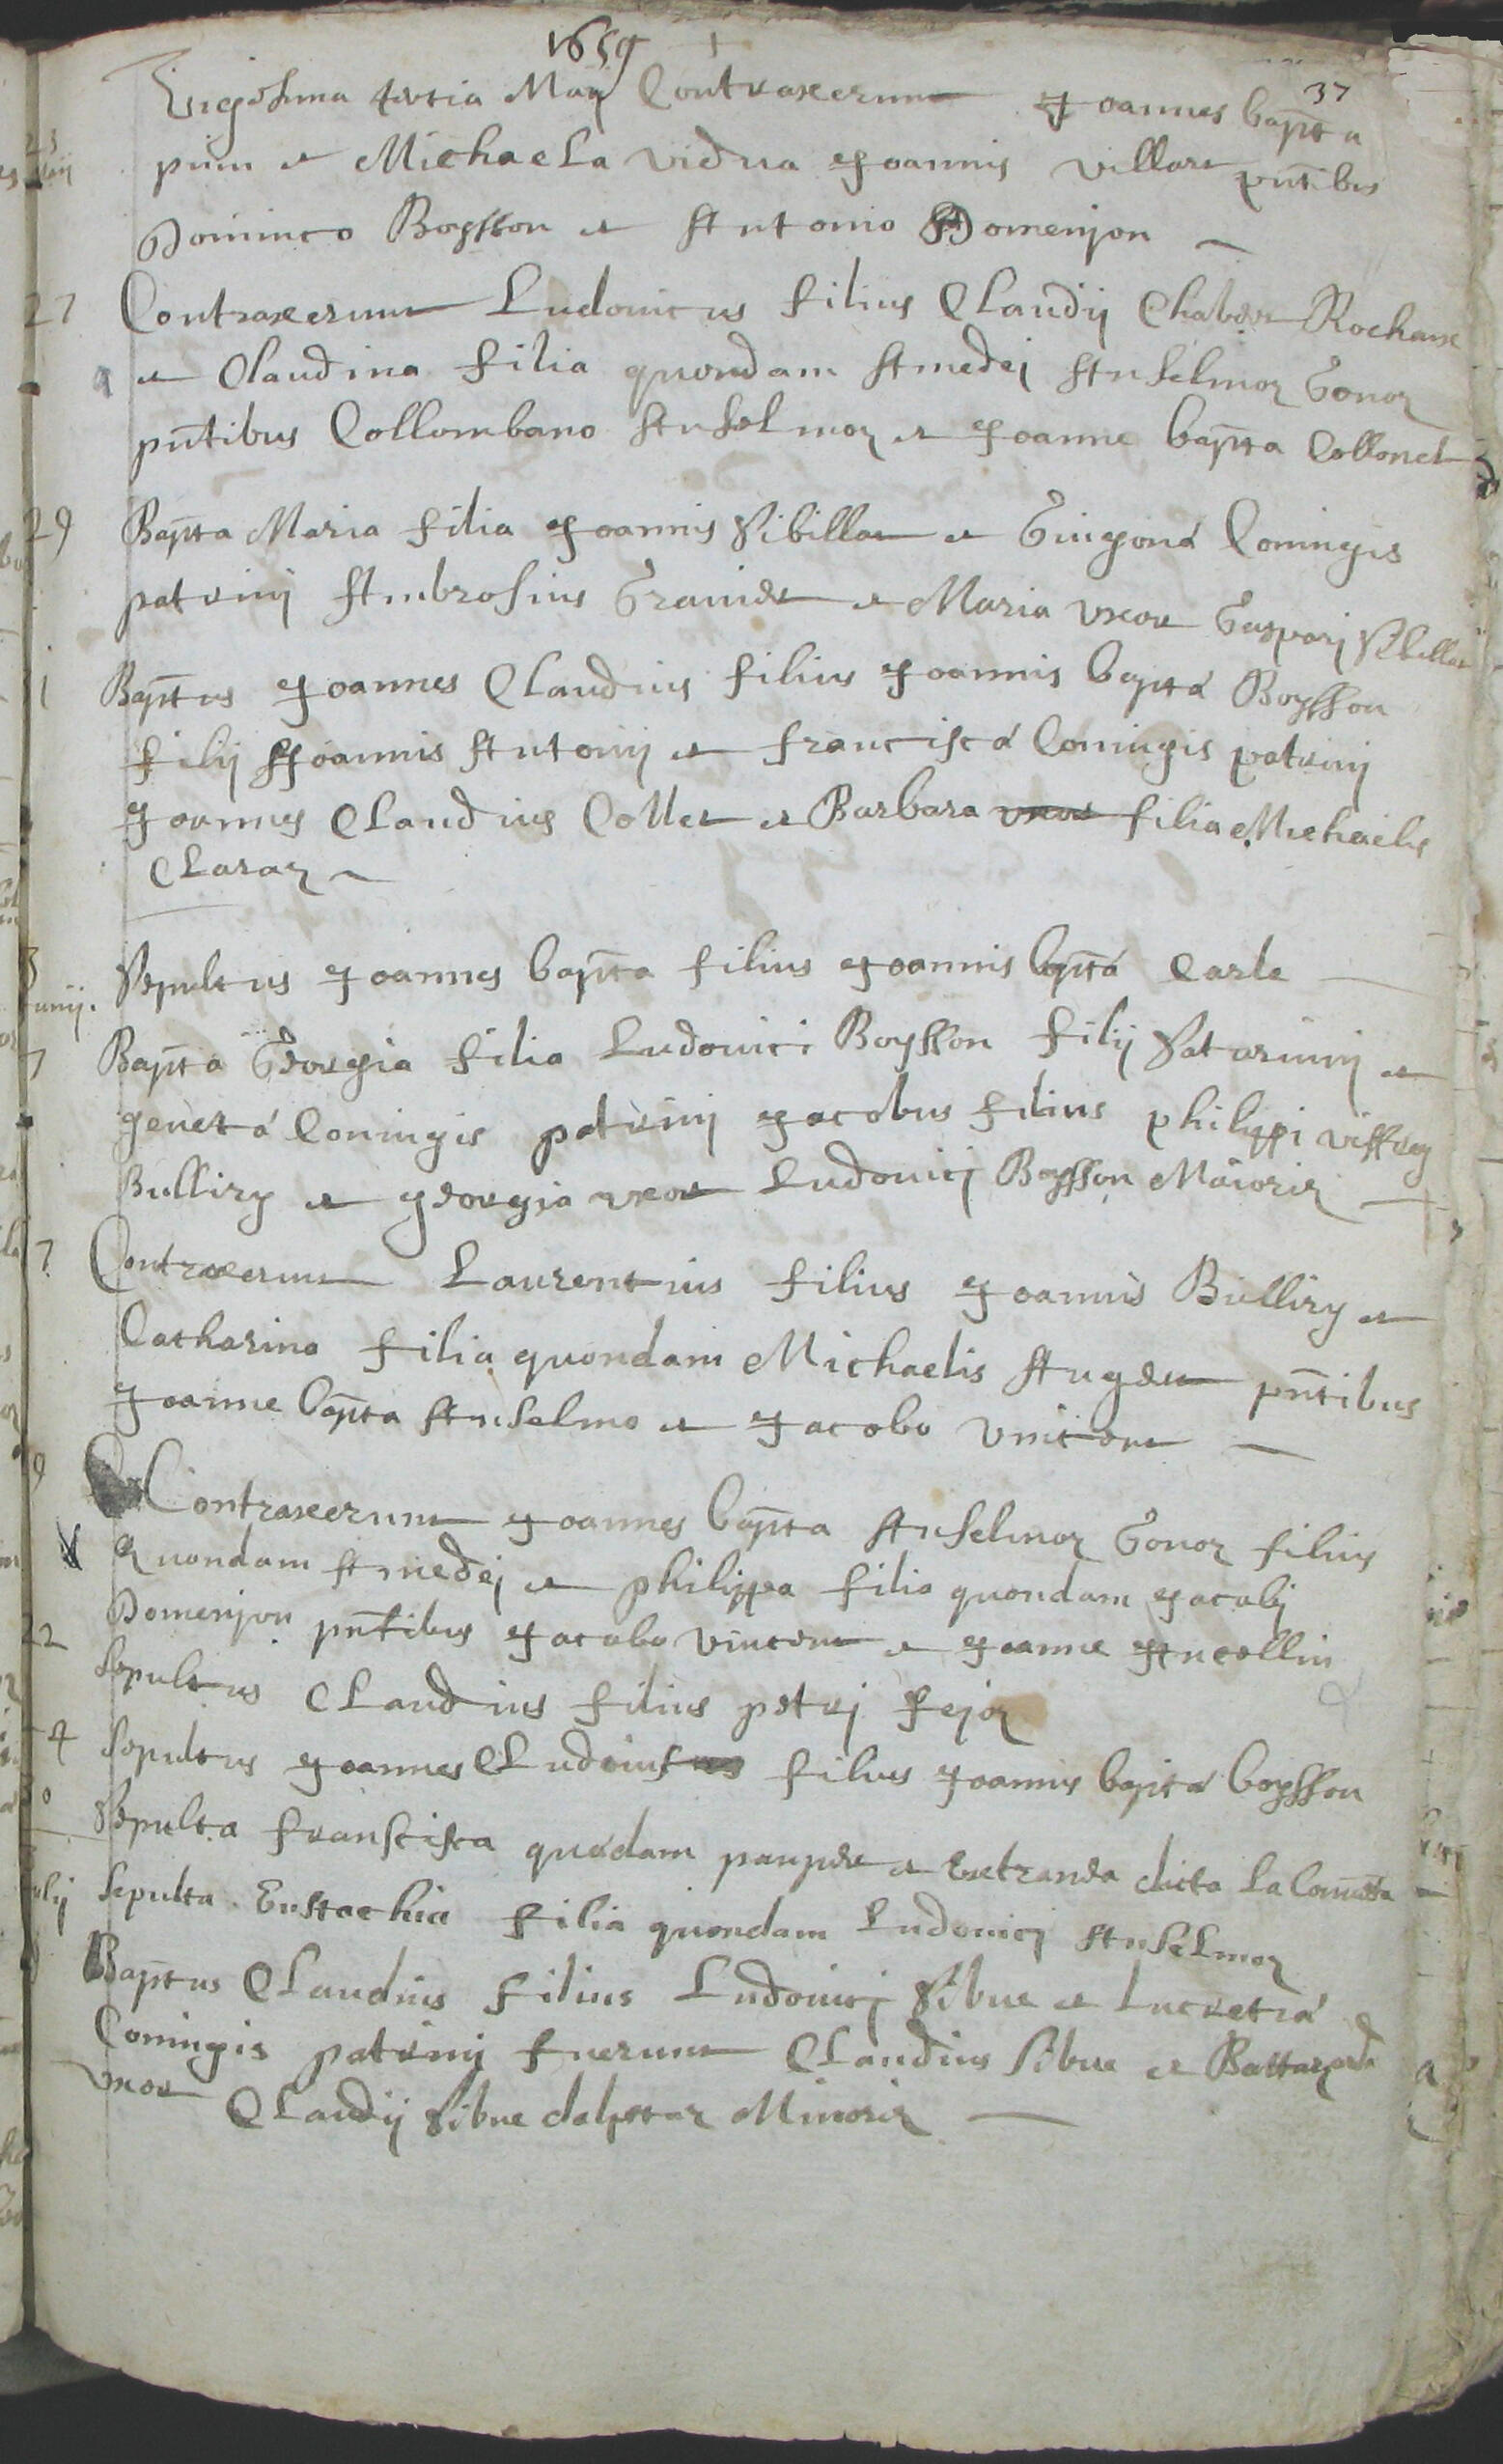 1659
37
Vigesima tertia Maij Contraxerunt Joannes bapta
pim et Michaela vidua Joannis villar pntibus
Dominico Boysson et Antonio Domenjon
27 Contraxerunt Ludovicus filius Claudij Chaber Rochaix
et Claudina filia quondam Amedej Anselmoz Gonoz
pntibus Collombano Anselmoz et Joanne bapta Collonel
29 Bapta Maria filia Joannis Sibillat et Guigona Coniugis
patrinij Ambrosius Granier et Maria uxor Gasparj Sibillat
1 Baptus Joannes Claudius filius Joannis bapta Boysson
filij Joannis Antonij et francisca Coniugis patrinij
Joannes Claudius Collet et Barbara uxor filia Michaelis
Claraz
Sepultus Joannes bapta filius Joannis bapta Carle
Junij.
7 Bapta Georgia filia Ludovici Boysson filij Saturninij et
geneta Coniugis patrinij Jacobus filius philippi viffrey
Bulliry et georgia uxor Ludovicj Boysson Maioris
7 Contraxerunt Laurentius filius Joannis Bulliry et
Catharina filia quondam Michaelis Auger pntibus
Joanne bapta Anselmo et Jacobo vincent
9 Contraxerunt Joannes bapta Anselmoz Gonoz filius
quondam Amedej et philippa filia quondam Jacobj
Domenjon pntibus Jacobo vincent et Joanne Ancellin
22 Sepultus Claudius filius petrj fejoz
4 Sepultus Joannes Cludius filius Joannis bapta boysson
Sepulta franscisca quedam pauper et Extranea dicta La
ulij Sepulta Eustachia filia quondam Ludovicj Anselmoz
Baptus Claudius filius Ludovicj Sibue et Lucretia
Coniugis patrinij fuerunt Claudius Sibue et Baltazarda
uxor Claudij Sibue Minoris